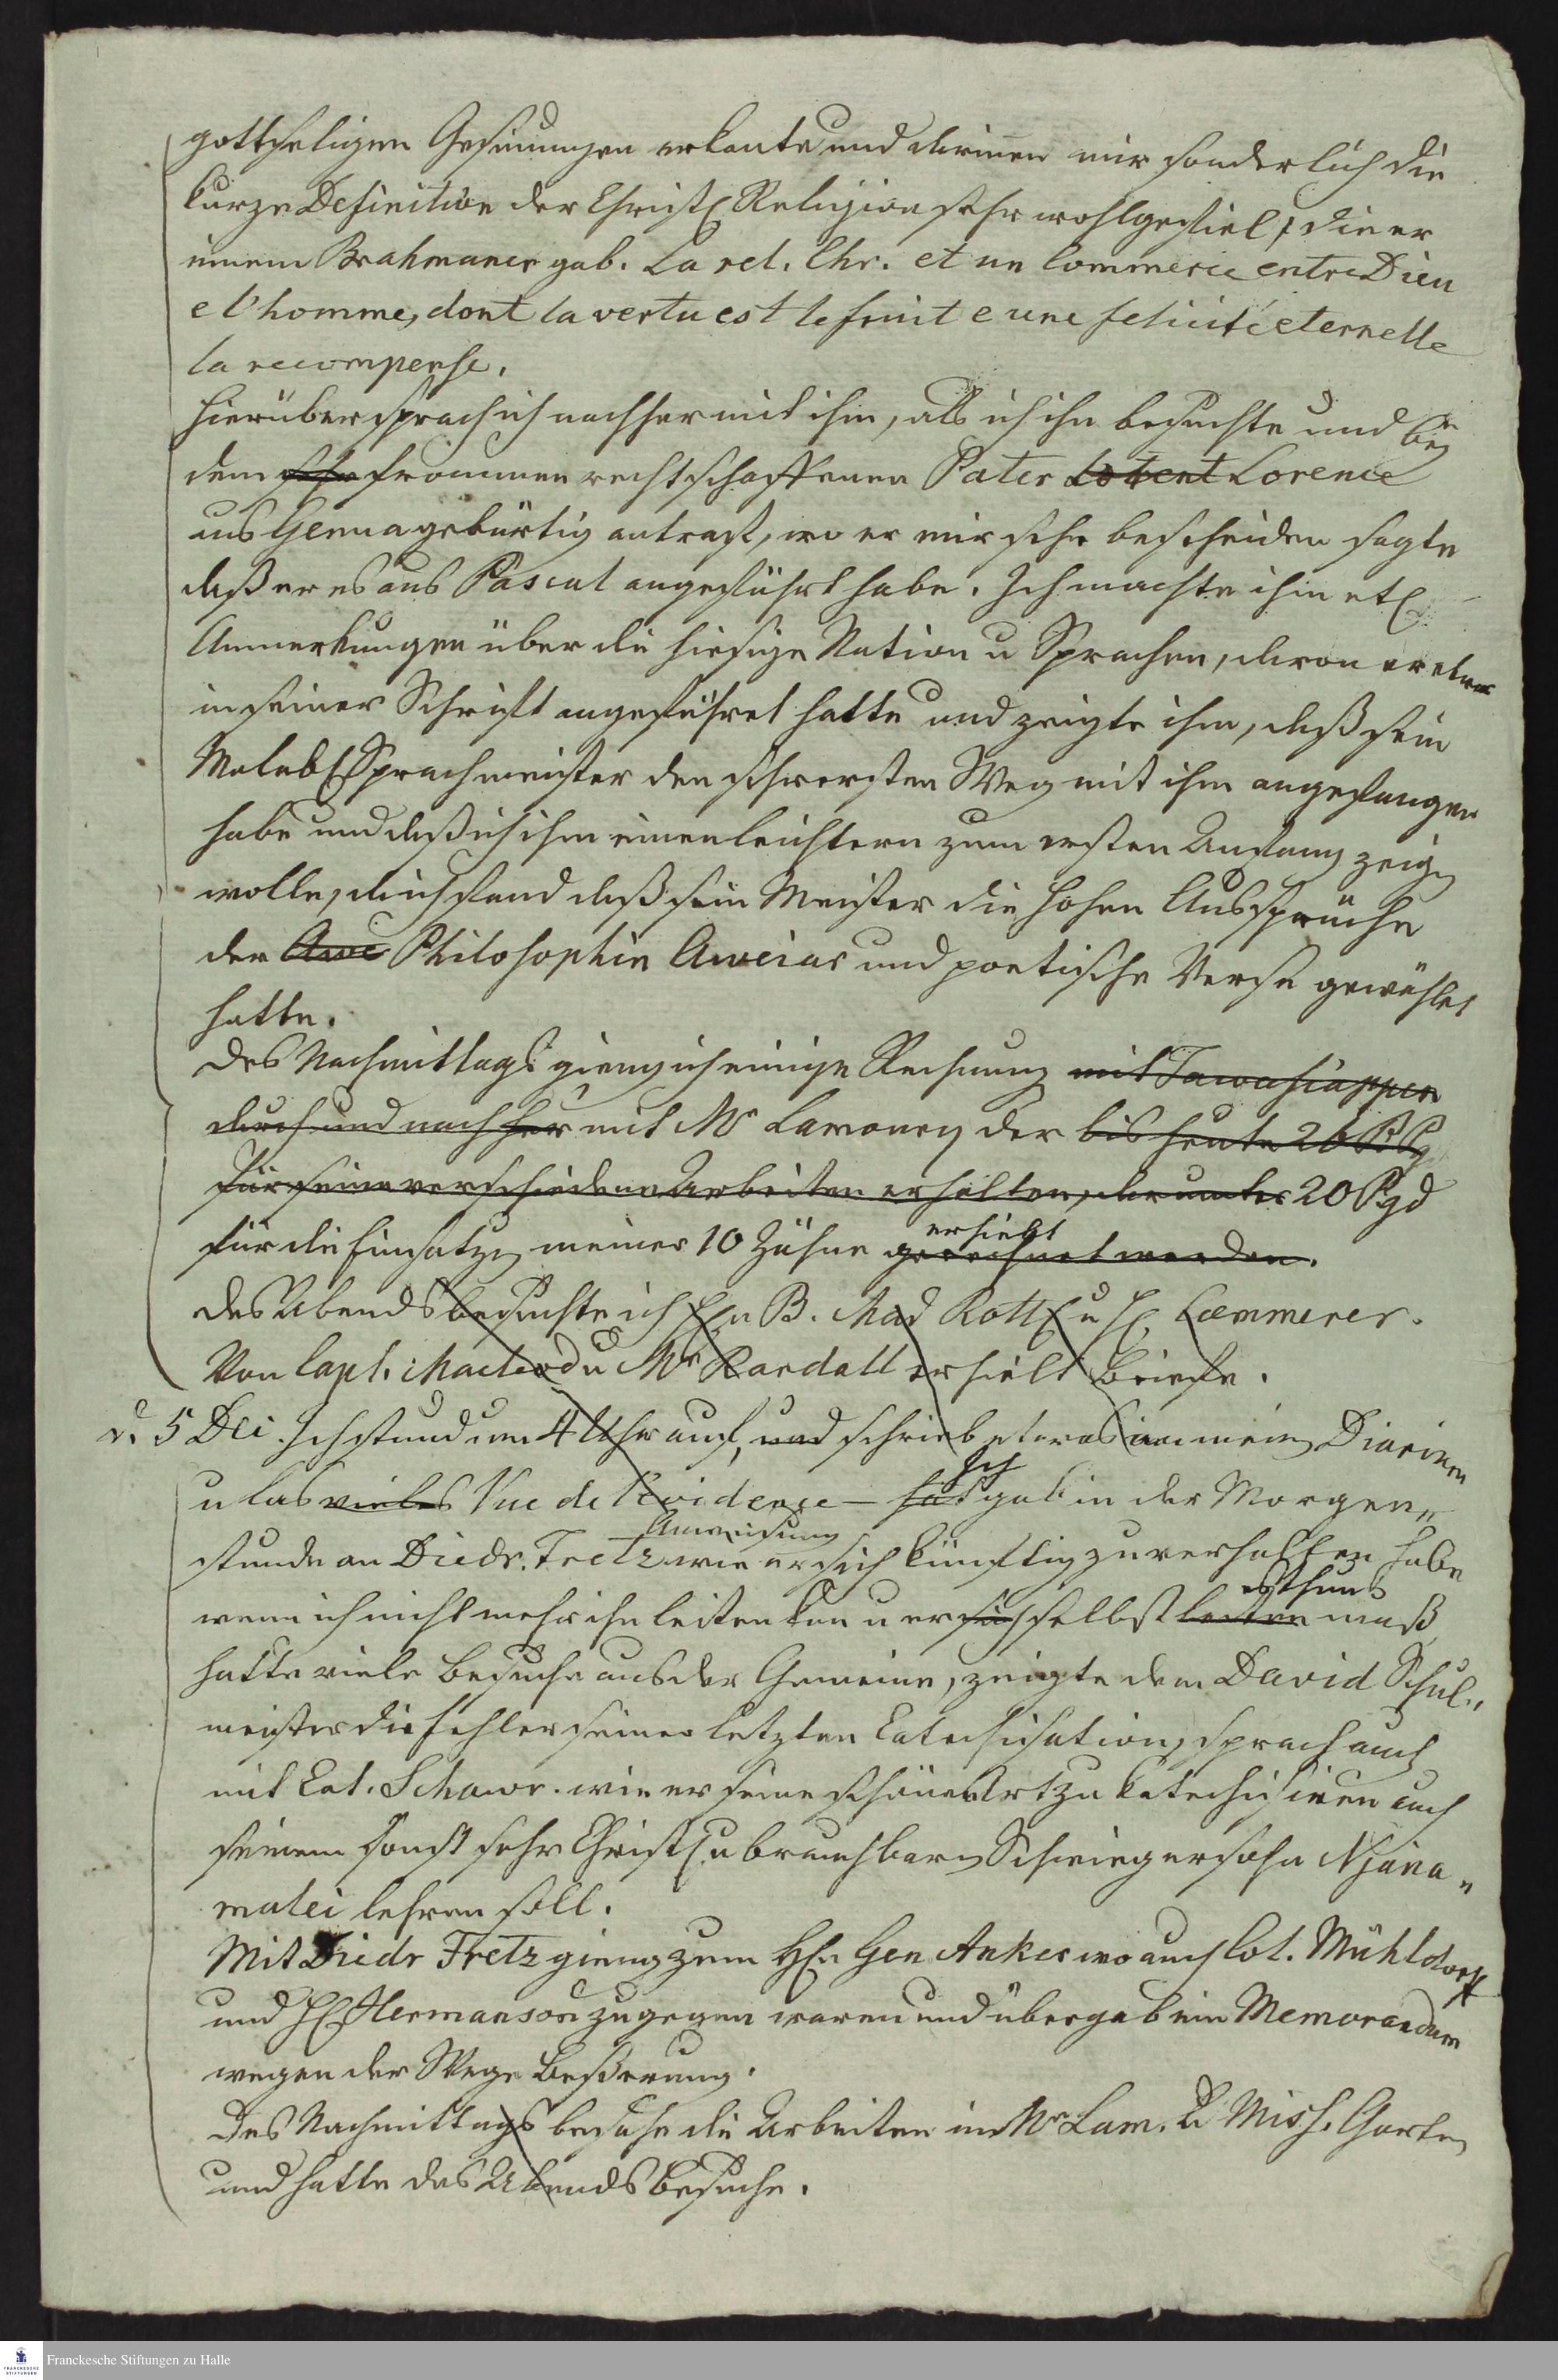 gottseligen Gesinnungen erkante und darinnen mir sonderlich die
kurze Definition der Christl Religion sehr wohlgefiel, die er
einem Brahmaner gab. La rel. Chr. et un Commerce entre Dieu
e l'homme, dont la vertu est le fruit e une felicité eternelle
la recompense.
hierüber sprach ich nachher mit ihm, als ich ihn besuchte und bey
dem sehr frommen rechtschaffenen Pater Lorence
aus Genua gebürtig antraf, wo er mir sehr bescheiden sagte
daß er es aus Pascal angeführt habe. Ich machte ihm etl
Anmerkungen über die hiesige Nation u Sprachen, davon er etwas
in seiner Schrift angeführet hatte und zeigte ihm, daß sein
Malab Sprachmeister den schwersten Weg mit ihm angefangen
habe und daß ich ihm einen leichtern zum ersten Anfang zeigen
wolle, denn ich fand daß sein Meister die hohen Aussprüche
der Awe Philosophin Aweiar und poetische Verse gewählet
hatte.
Des Nachmittags gieng ich einige Rechnung mit Tawasiappen
durch und nachher mit Mr Lamoury der bis heute 26 Pgd
für seine verschiedene Arbeiten erhalten, darunter 20 Pgd
für die Einsatzg meiner 10 Zähne gerechnet worden. erhielt
Des Abends besuchte ich Hn B. Mad Rottl u H. Cæmmerer.
Von Capt. Macleod u Mr Randall erhielt Briefe.
d. 5 Dec. Ich stund um 4 Uhr auf, und schrieb etwas an meinem Diarium
u las vieles Vue de l'evidence – hat Ich gab in der Morgen„
stunde an Diedr. Fretz Anweisung wie er sich künftig zu verhalten habe
wenn ich nicht mehr ihn leiten kan u er sich selbst leiten es thun muß
hatte viele Besuche aus der Gemeine, zeigte dem David Schul„
meister die Fehler seiner letzten Catechisation, sprach auch
mit Cat. Schawr. wie er seine schöne Art zu katechisiren auch
seinem sonst sehr Christl u brauchbaren Schwiegersohn Njana„
malei lehren soll.
Mit Diedr Fretz gieng zum Hn Gen Anker wo auch Col. Mühldorff
und H Hermanson zugegen waren und übergab ein Memorandum
wegen der Wege Besserung.
Des Nachmittags besahe die Arbeiten im Mr Lam. u Miss. Garten
und hatte des Abends Besuche.
Franckesche Stiftungen zu Halle